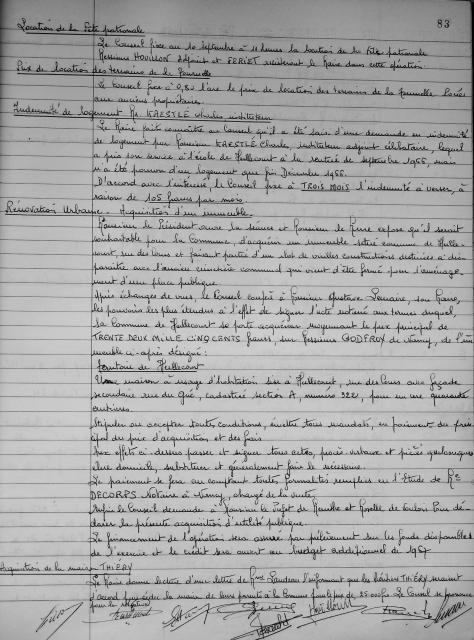 83
Location de la Fête patronale
Le Conseil fixe au 10 septembre à 11 heures la location de la fête patronale
Messieurs HOUILLON Adjoint et FERIET assisteront le Maire dans cette opération.
Prix de location des terrains de la
Le Conseil fixe à 0,80 l'are le prix de location des terrains de la
aux anciens propriétaires.
Indemnité de logement Mr. KAESTLÉ Charles instituteur
Le Maire fait connaître au Conseil qu'il a été saisi d'une demande en indemnité
de logement par Monsieur KAESTLÉ Charles, instituteur adjoint célibataire, lequel
a pris son service à l'école de à la rentrée de septembre 1966, mais
n'a été pourvu d'un logement que fin Décembre 1966.
D'accord avec l'intéressé, le Conseil fixe à TROIS MOIS l'indemnité à verser, à
raison de 105 francs par mois.
Rénovation Urbaine - Acquisition d'un immeuble.
Monsieur le Président ouvre la séance et Monsieur le Maire expose qu'il serait
souhaitable pour la Commune, d'acquérir un immeuble situé commune de
court, rue des et faisant partie d'un îlot de vieilles constructions destinées à dis-
paraître avec l'ancien cimetière communal qui vient d'être fermé pour l'aménage-
ment d'une place publique.
Après échanges de vues, le Conseil confère à Monsieur Gustave Lemaire, son Maire,
les pouvoirs les plus étendus à l'effet de signer l'acte notarié aux termes duquel,
la Commune de se porte acquéreur moyennant le prix principal de
TRENTE DEUX MILLE CINQ CENTS francs, sur Messieurs GODFROY de Nancy, de l'im-
meuble ci-après désigné :
Territoire de
Une maison à usage d'habitation sise à rue des avec façade
secondaire rue du Gué, cadastrée section A, numéro 322, pour un are quarante
centiares.
Stipuler ou accepter toutes conditions, émettre tous mandats, en paiement du prin-
cipal du prix d'acquisition et des frais
Aux effets ci-dessus passer et signer tous actes, procès-verbaux et pièces quelconques
élire domicile, substituer et généralement faire le nécessaire.
Le paiement se fera au comptant toutes formalités remplies en l'Etude de Me
DECORPS Notaire à Nancy, chargé de la vente,
Enfin le Conseil demande à Monsieur le Préfet de Meurthe et Moselle de vouloir bien dé-
clarer la présente acquisition d'utilité publique.
Le financement de l'opération sera assuré par prélèvement sur les fonds disponibles
de l'exercice et le crédit sera ouvert au budget additionnel de 1967
Acquisition de la maison THIERY
Le Maire donne lecture d'une lettre de l'informant que les héritiers THIERY seraient
d'accord pour céder la maison de leur parenté à la Commune pour le prix de 25 000 frs. Le Conseil se prononce
pour la négative